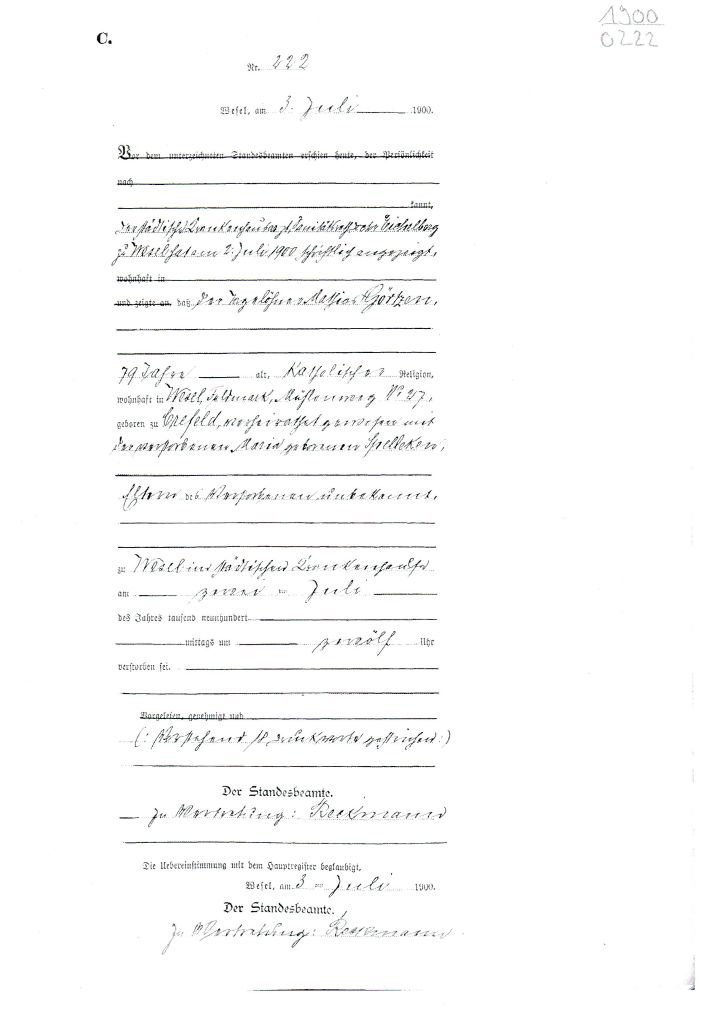 1900
0222
C.
Nr. 222
Wesel, am 3. Juli 1900.
Vor dem unterzeichneten Standesbeamten erschien heute, der Persönlichkeit
nach
kannt,
Der städtische Krankenhausarzt Sanitätsrath
zu Wesel hat am 2. Juli 1900 schriftlich angezeigt,
wohnhaft in
und zeigte an, daß der Tagelöhner Mathias Görtzen,
79 Jahre alt, Katholischer Religion,
wohnhaft in Wesel, Feldmark, Mühlenweg No 27,
geboren zu Crefeld, verheirathet gewesen mit
der verstorbenen Maria geborenen
Eltern des Verstorbenen unbekannt,
zu Wesel im städtischen Krankenhause
am zwei - Juli
des Jahres tausend neunhundert
mittags um zwölf Uhr
verstorben sei.
Vorgelesen, genehmigt und
(: Vorstehend 18 Druckworte gestrichen :)
Der Standesbeamte.
In Vertretung: Beckmann
Die Uebereinstimmung mit dem Hauptregister beglaubigt,
Wesel, am 3 - Juli 1900.
Der Standesbeamte.
In Vertretung: Beckmann